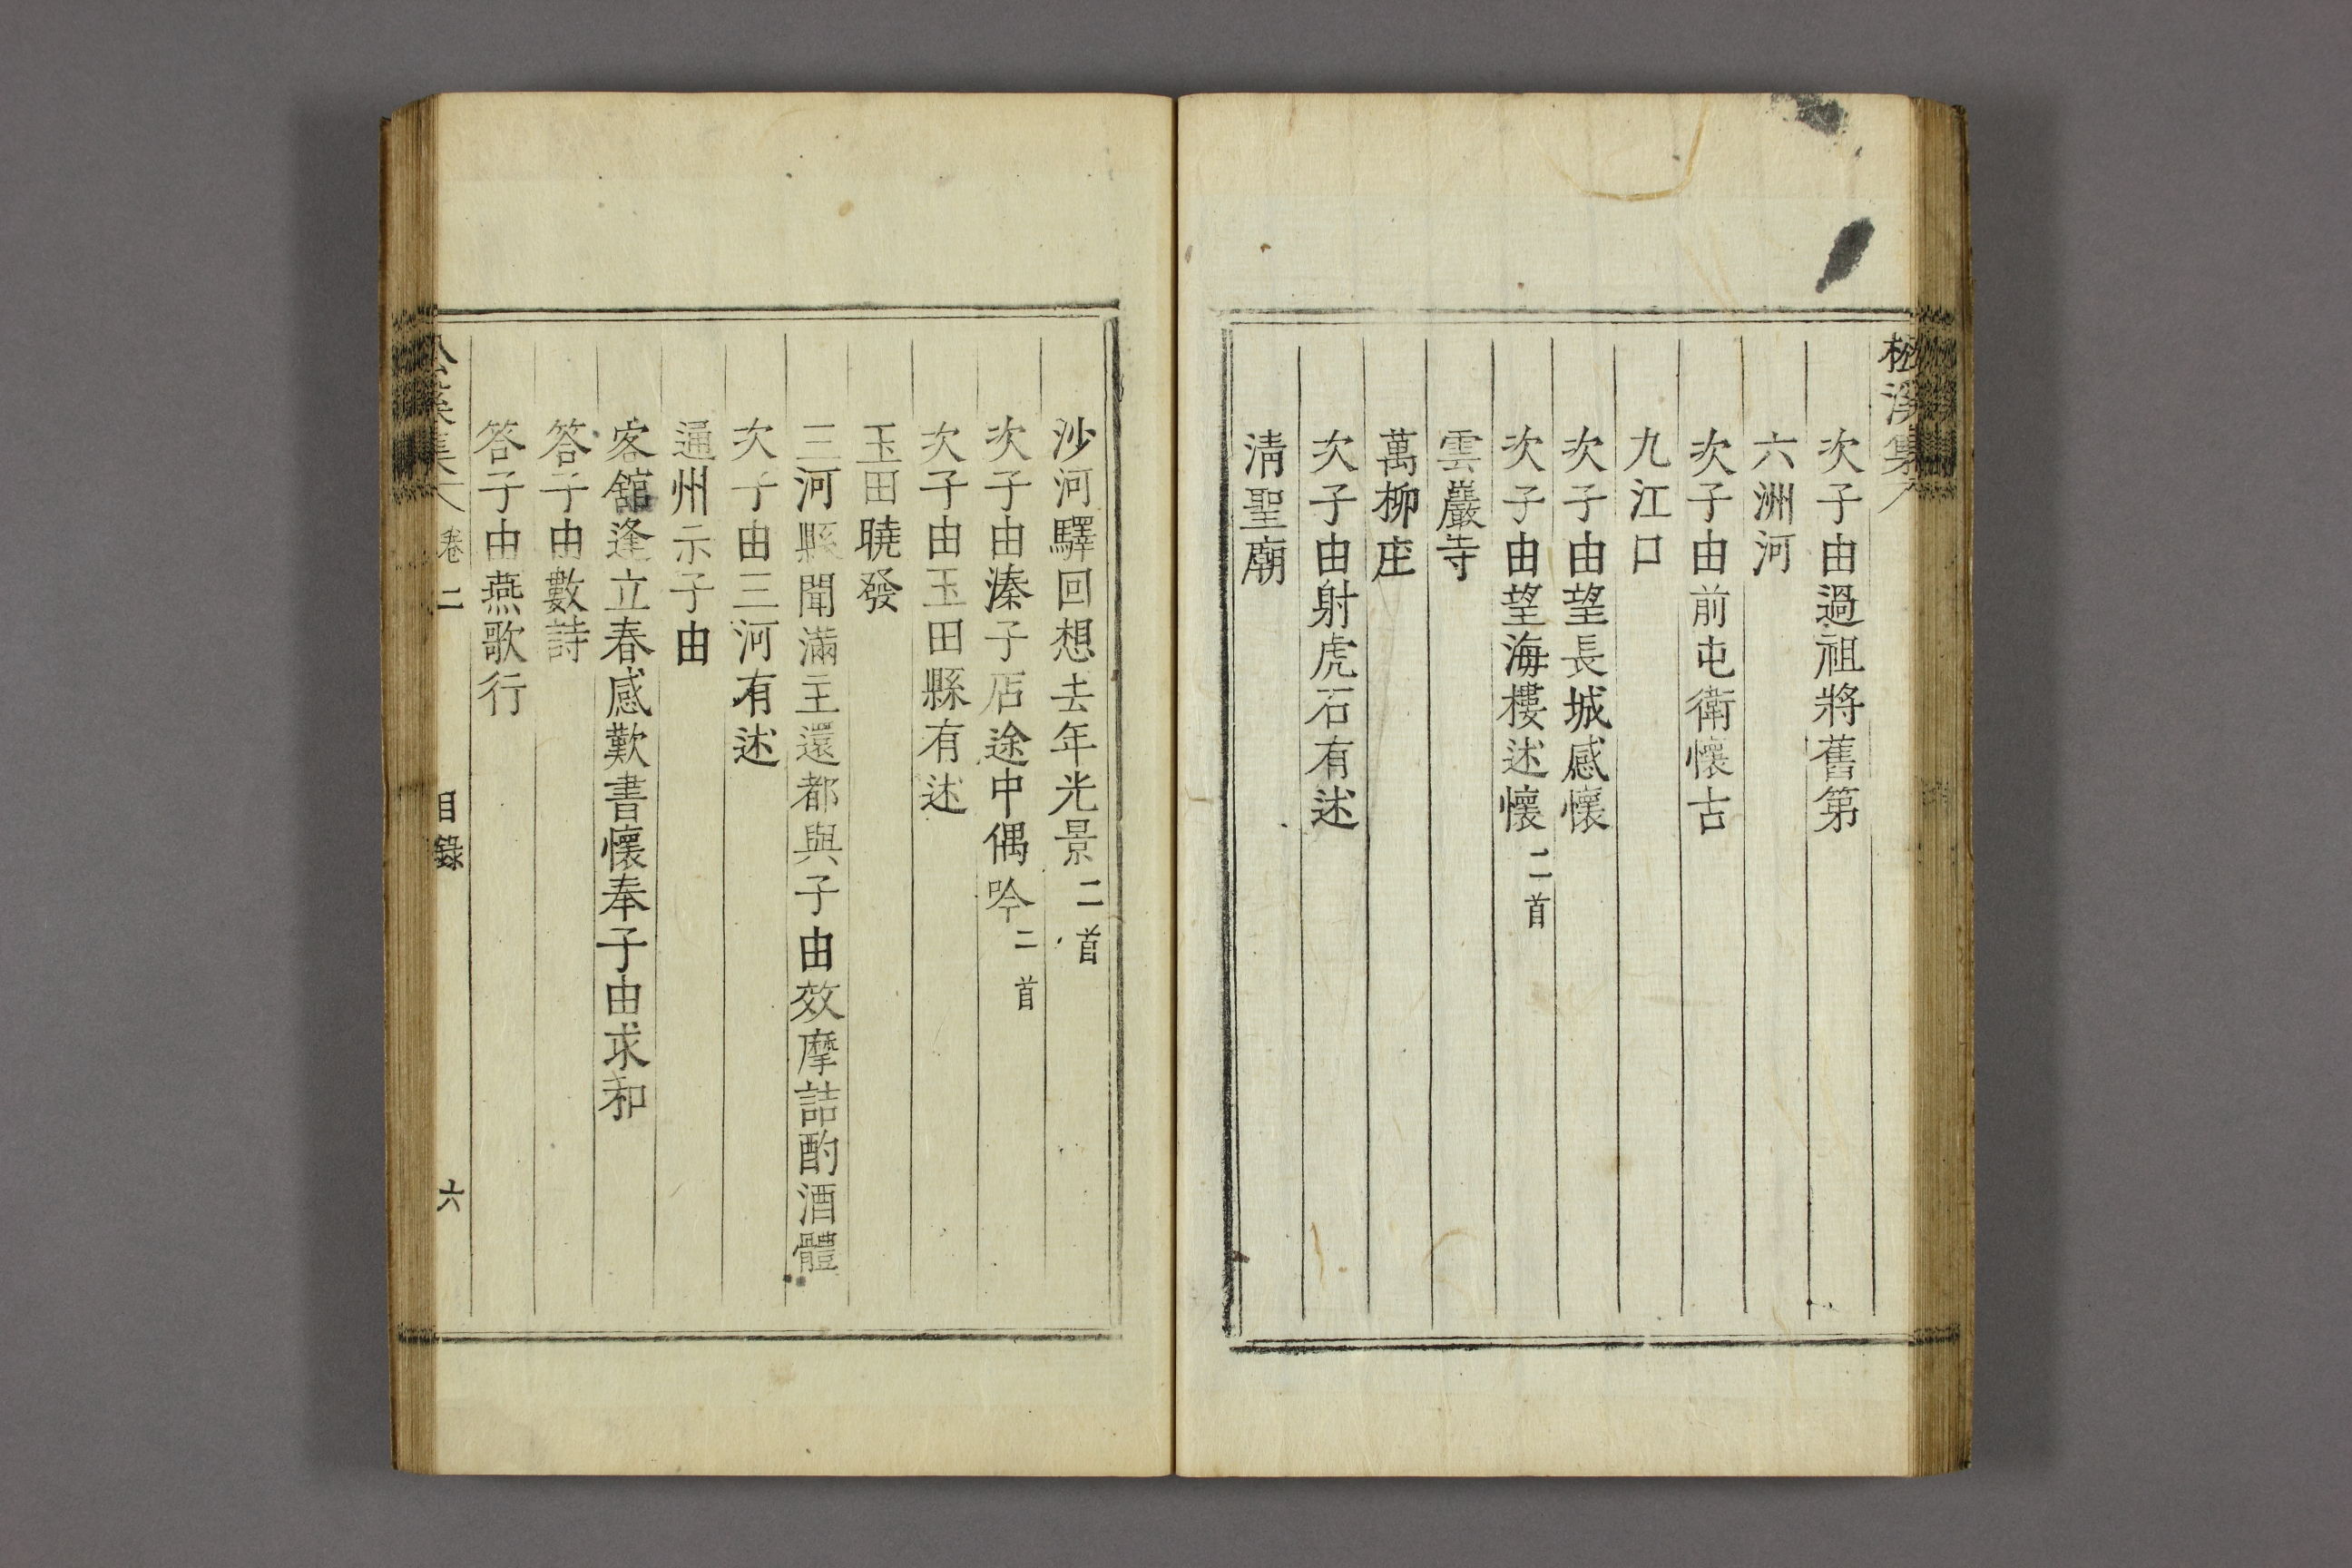 松溪集
次子由過祖將舊第
六洲河
次子由前屯衛懷古
九江口
次子由望長城感懷
次子由望海樓述懷 二首
雲巖寺
萬柳庄
次子由射虎石有述
淸聖廟
沙河驛回想去年光景 二首
次子由溱子店途中偶吟 二首
次子由玉田縣有述
玉田曉發
三河縣聞滿主還都與子由效摩詰酌酒體
次子由三河有述
通州示子由
客舘逢立春感歎書懷奉子由求和
答子由數詩
答子由燕歌行
松溪集 卷二 目錄 六